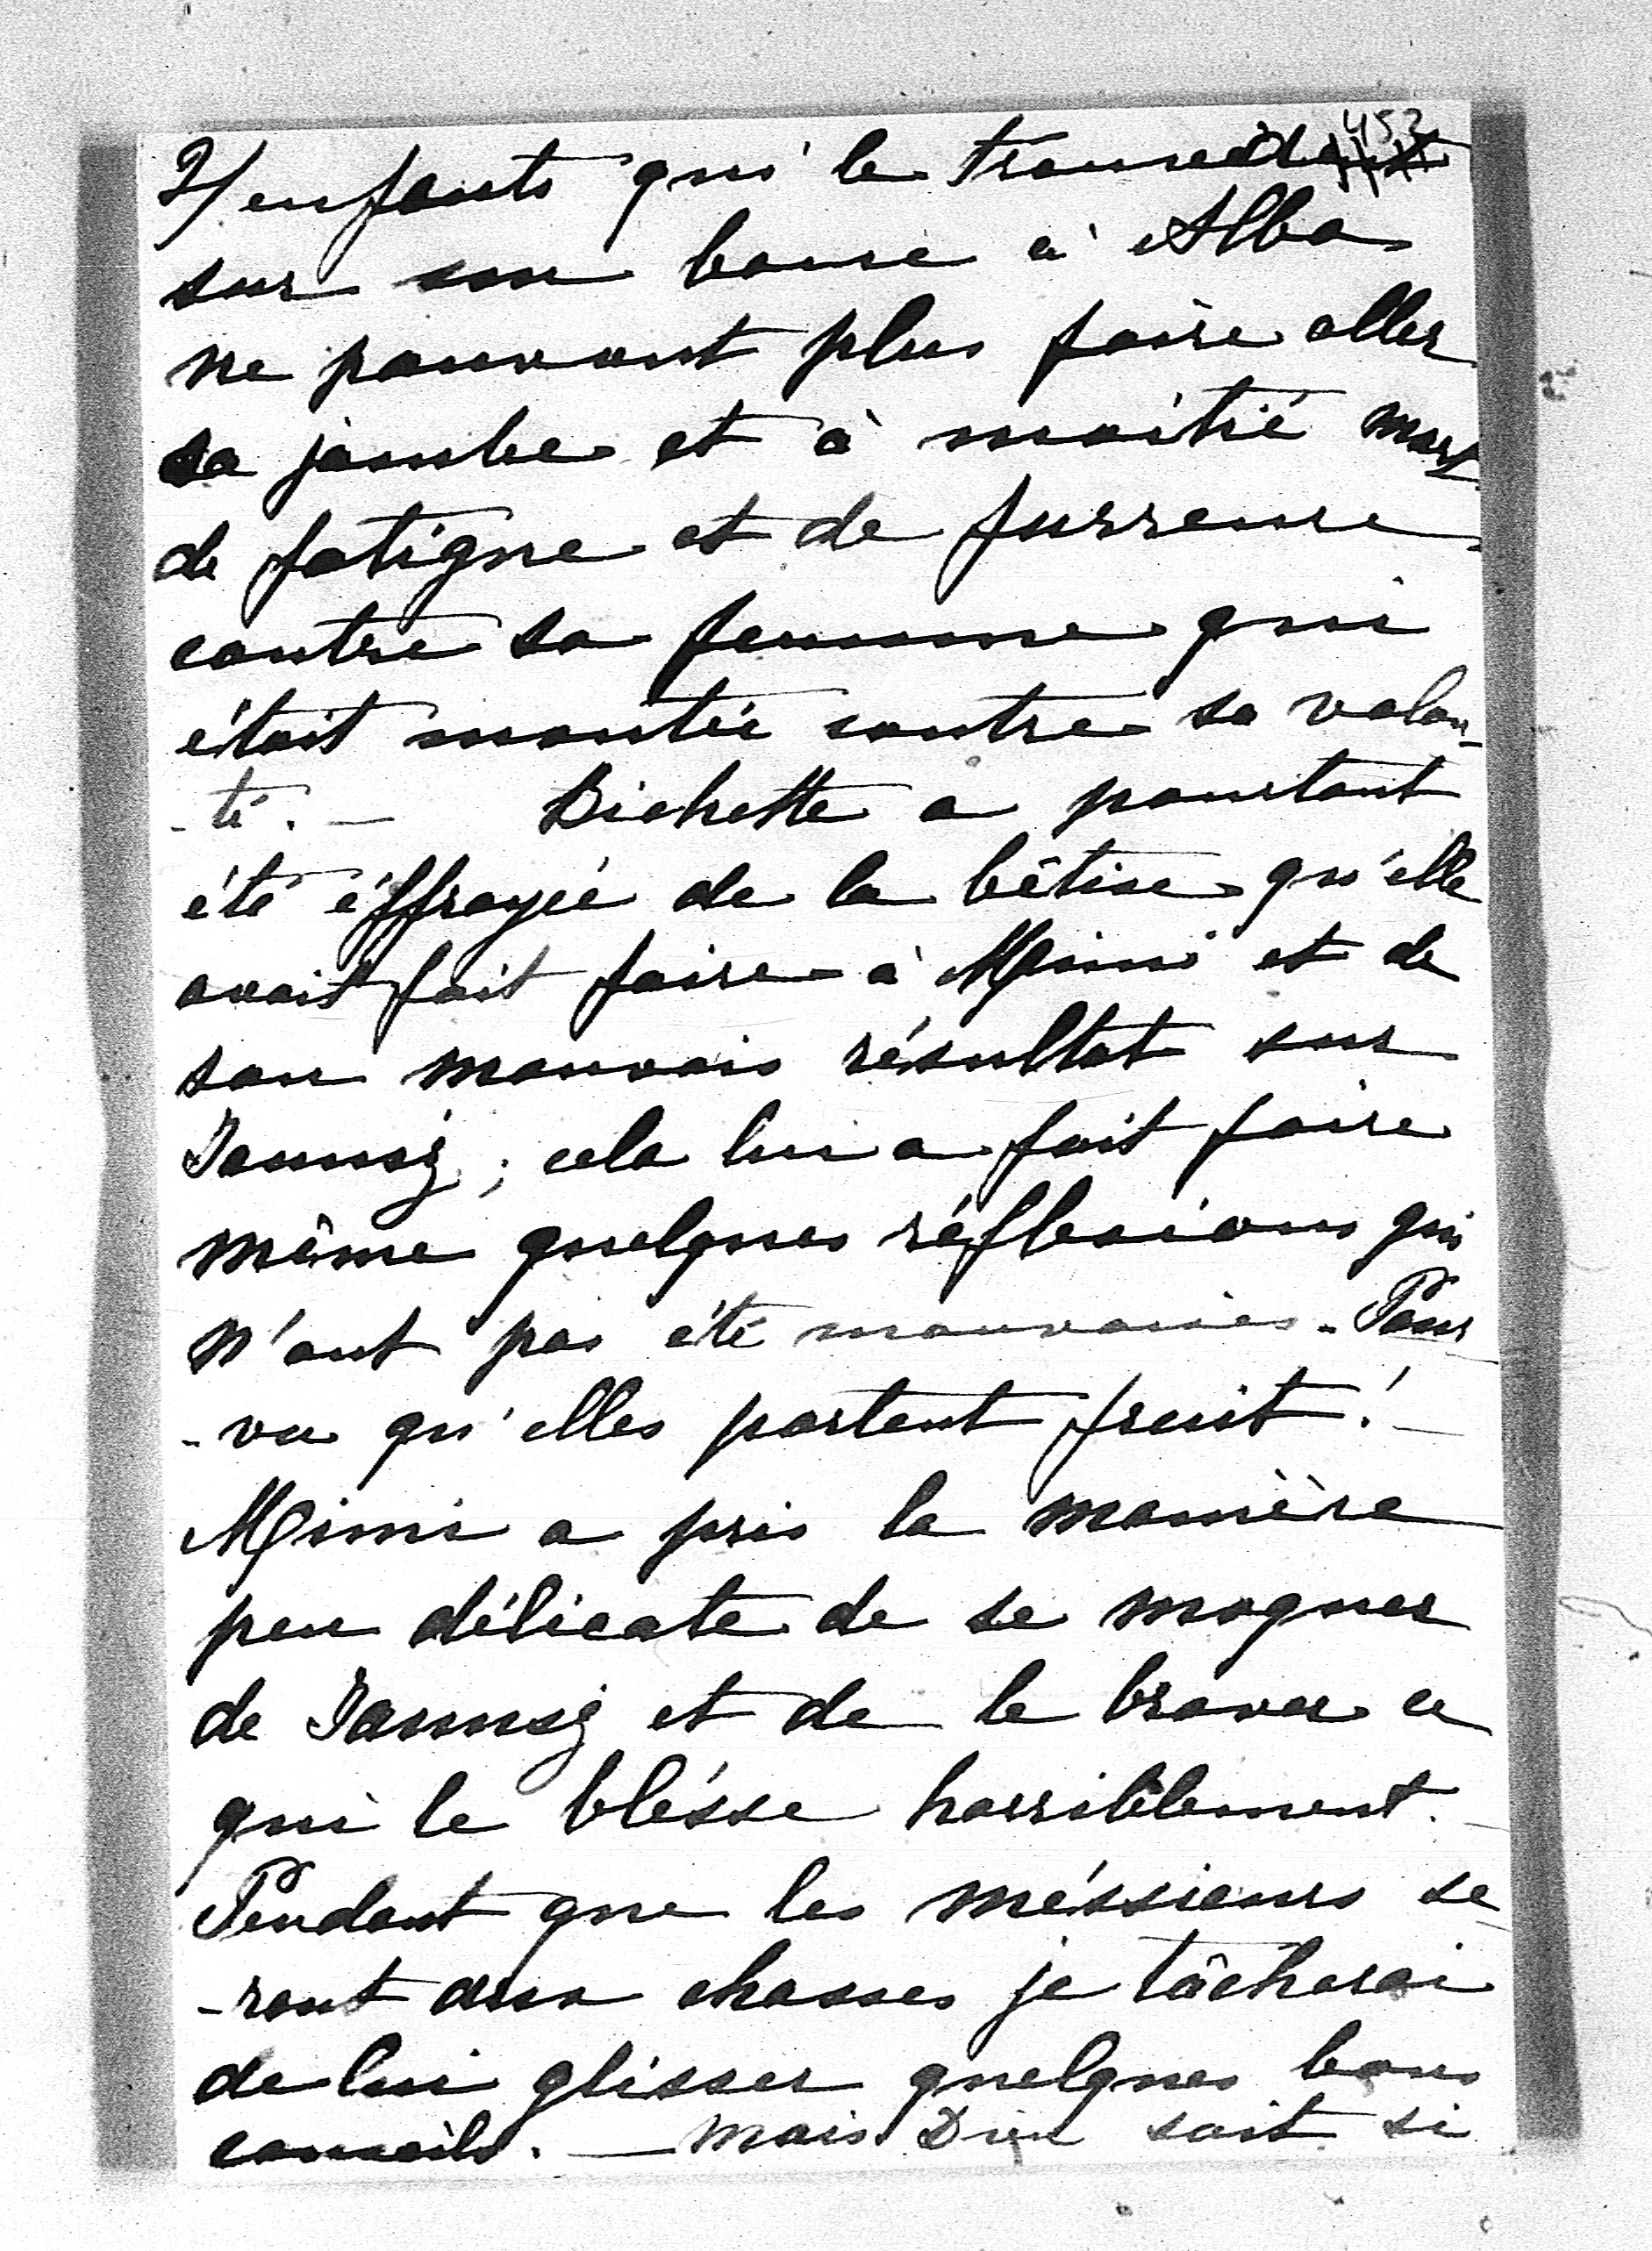 453
2/ enfants qui le trouvèrent
sur son banc à Alba
ne pouvant plus faire aller
sa jambe et à moitié mort
de fatigue et de furreure
contre sa femme qui
était montée contre sa volon-
-té. — Bichette a pourtant
été éffrayée de la bêtise qu'elle
avait fait faire à Mimi et de
son mauvais résultat sur
; cela lui a fait faire
même quelques réflexions qui
n'ont pas été mauvaises. Pour-
-vu qu'elles portent fruit! —
Mimi a pris la manière
peu délicate de se moquer
de et de le braver ce
qui le blésse horriblement. —
Pendant que les méssieurs se-
-ront aux chasses je tâcherai
de lui glisser quelques bons
conseils. — Mais Dieu sait si